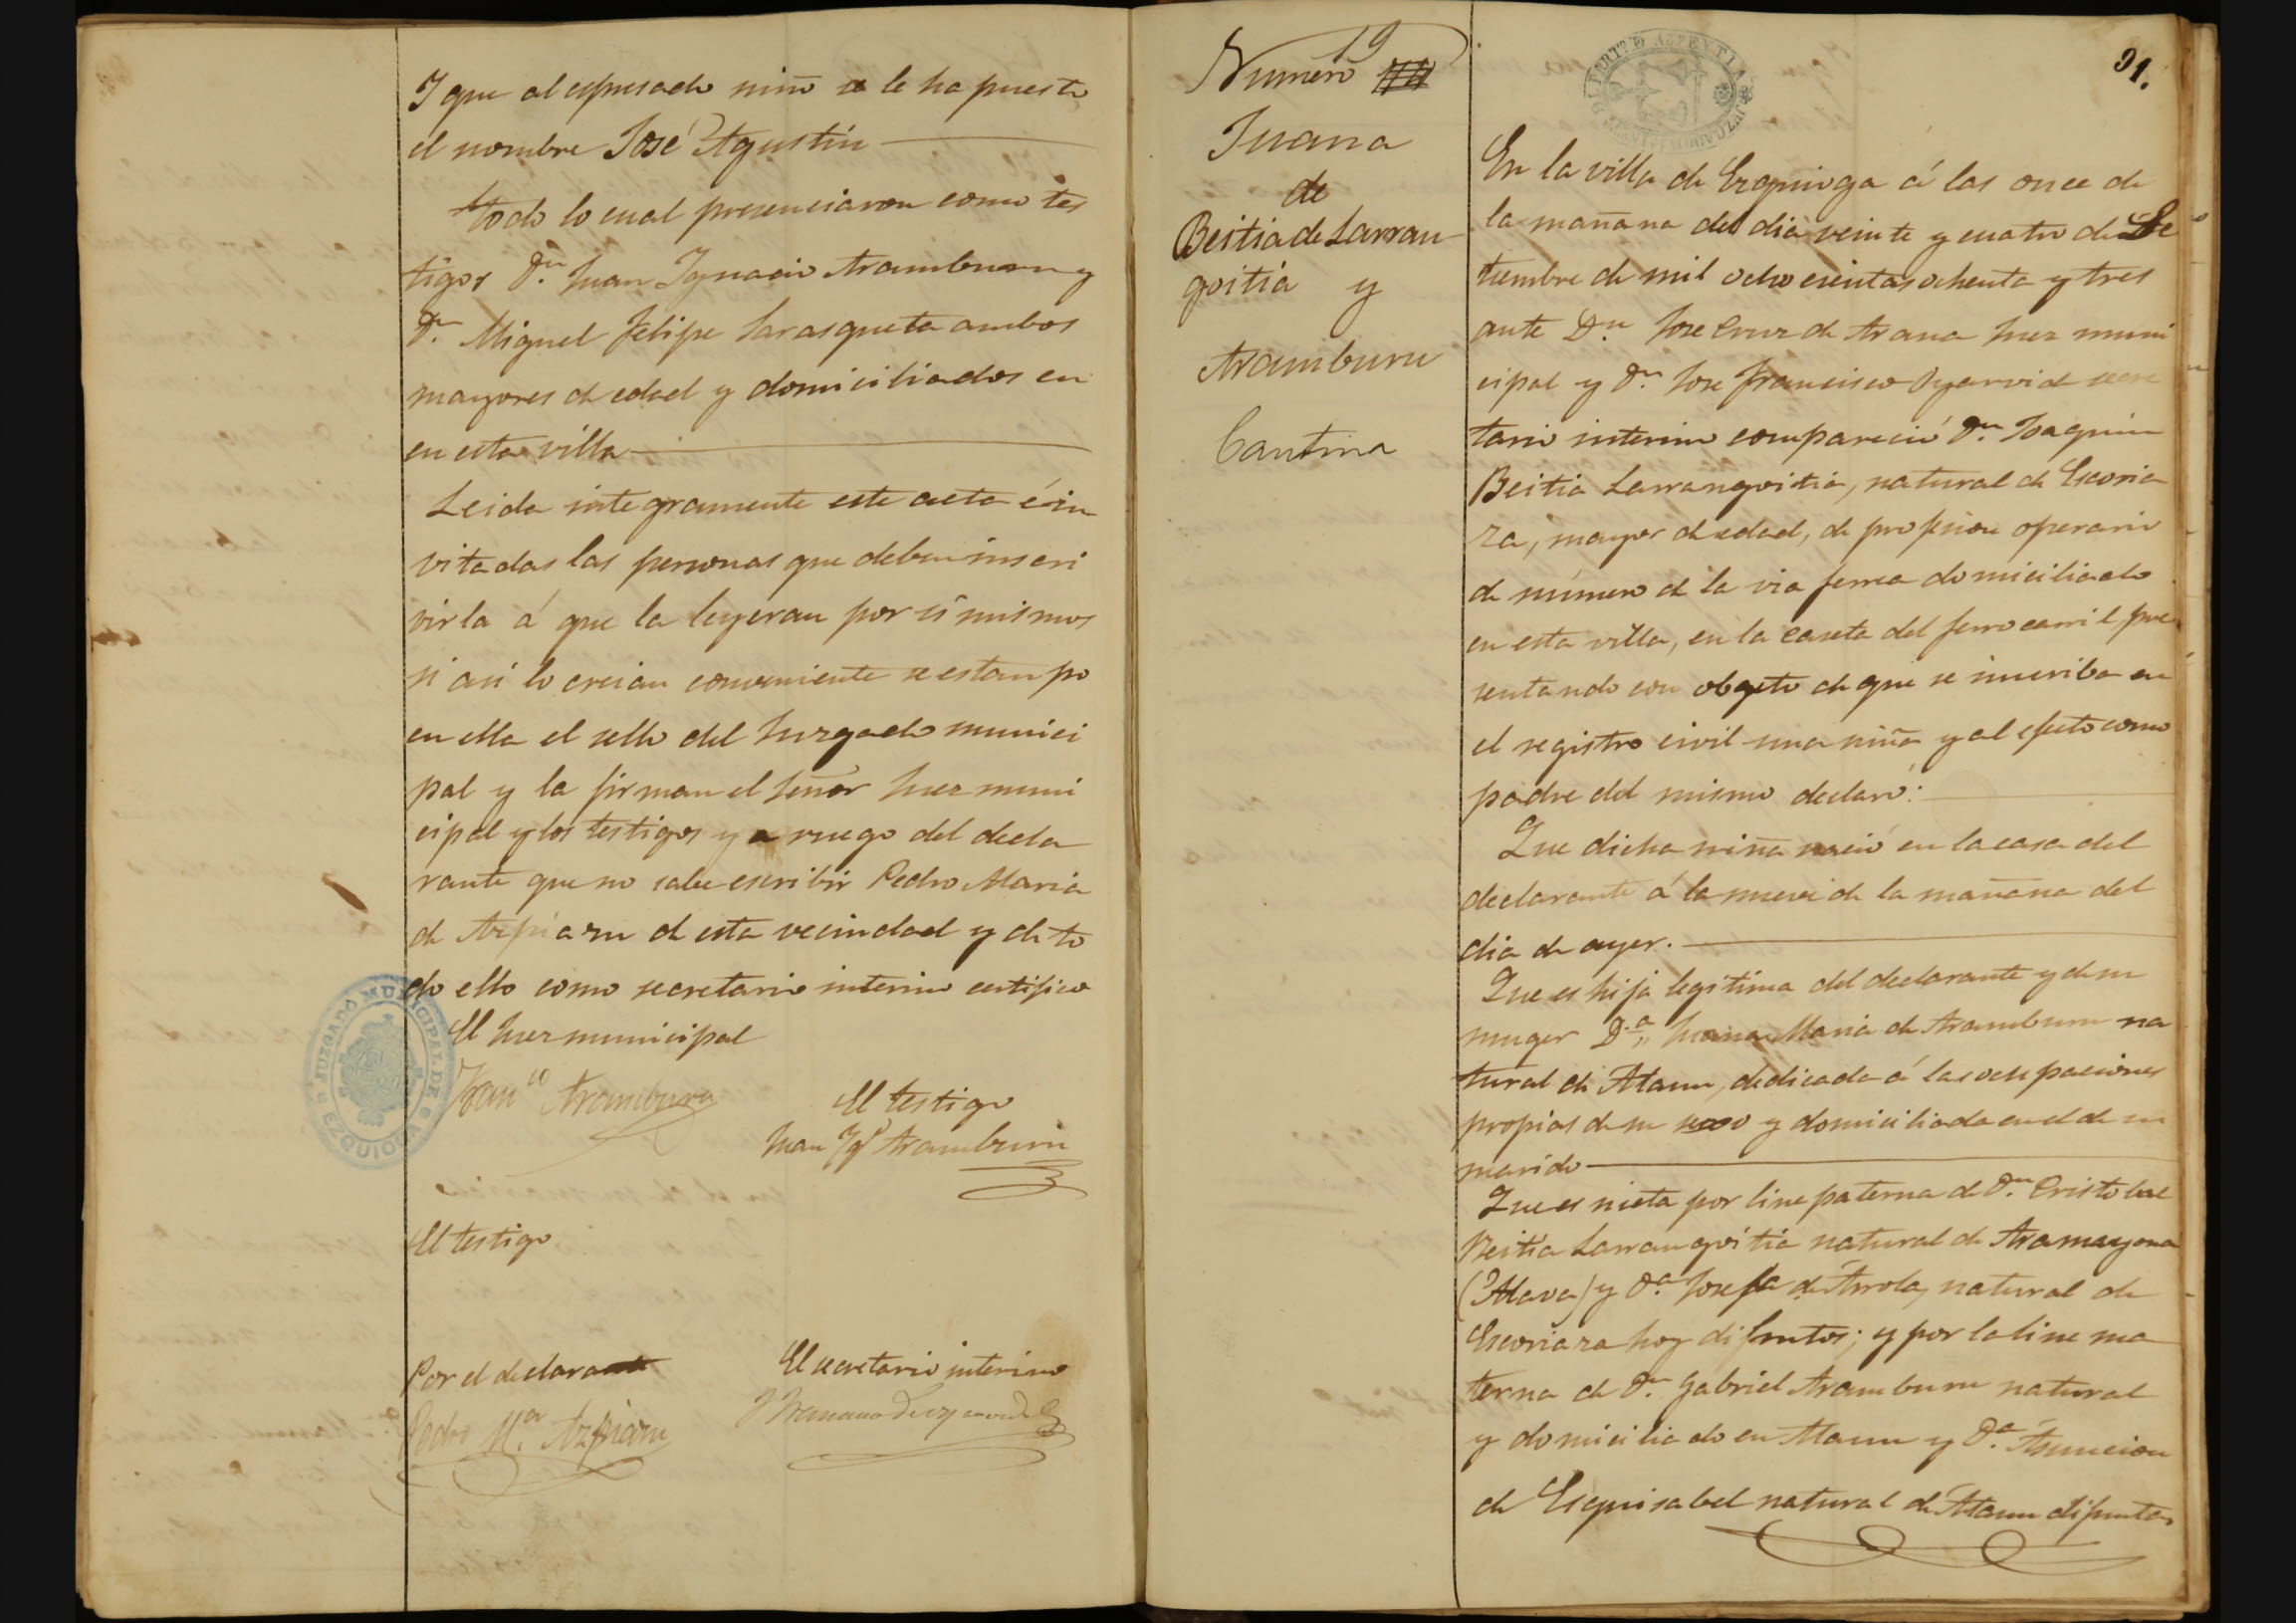 Y que al espresado niño se le ha puesto
el nombre José Agustin
todo lo cual presenciaron como tes
tigos Dn. Juan Ygnacio Aramburu y
Dn. Miguel Felipe Larasqueta ambos
mayores de edad y domiciliados en
en esta villa
Leida integramente este acta é in
vitadas las personas que deben inscri
virla á que la leyeran por si mismos
si asi lo creian conveniente se estampo
en ella el sello del Juzgado munici
pal y la firman el Señor Juez muni
cipal y los testigos y a ruego del decla
rante que no sabe escribir Pedro Maria
de Azpiazu de esta vecindad y de to
do ello como secretario interino certifico
El Juez municipal
Franco Aramburu
El testigo
Juan Ygo Aramburu
El testigo
Por el declarante
Pedro Ma. Azpiazu
El secretario interino
JUZGADO MUNICIPAL DE EZQUIOGA
Número 19
Juana
de
Beitia de Larran
goitia y
Aramburu
Cantina
PARTO. D AZPEYTIA
91.
En la villa de Ezquioga á las once de
la mañana del dia veinte y cuatro de Se
tiembre de mil ochocientos ochenta y tres
ante Dn. Jose Cruz de Arana Juez muni
cipal y Dn. Jose Francisco Oyarvide secre
tario interino compareció Dn. Joaquin
Beitia Larrangoitia, natural de Escoria
za, mayor de edad, de profesion operario
de número de la via ferrea domiciliado
en esta villa, en la caseta del ferrocarril, pre
sentando con obgeto de que se inscriba en
el registro civil una niña y al efecto como
padre del mismo declaró:
Que dicha niña nació en la casa del
declarante á la nueve de la mañana del
dia de ayer.
Que es hija legitima del declarante y de su
muger D.a Juana Maria de Aramburu na
tural de Ataun, dedicada á las ocupaciones
propias de su sexo y domiciliada en el de su
marido
Que es nieta por line paterna de Dn. Cristobal
Beitia Larrangoitia natural de Aramayona
(Alava) y Da. Josefa de Arrola, natural de
Escoriaza hoy difuntos; y por la line ma
terna de Dn. Gabriel Aramburu natural
y domiciliado en Ataun y Da. Asuncion
de Esquisabel natural de Ataun difuntos